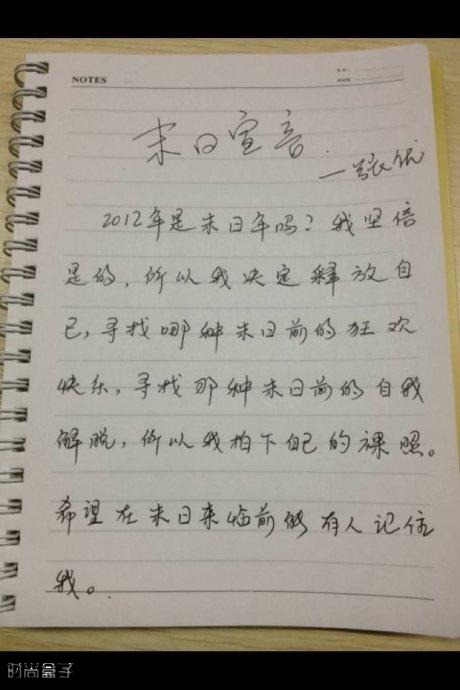 NOTES
NO:
DATE
末日宣言
—张优
2012年是末日年吗?我坚信
是的,所以我决定释放自
己,寻找哪种末日前的狂欢
快乐,寻找那种末日前的自我
解脱,所以我拍下自己的裸照。
希望在末日来临前能有人记住
我。
时尚盒子